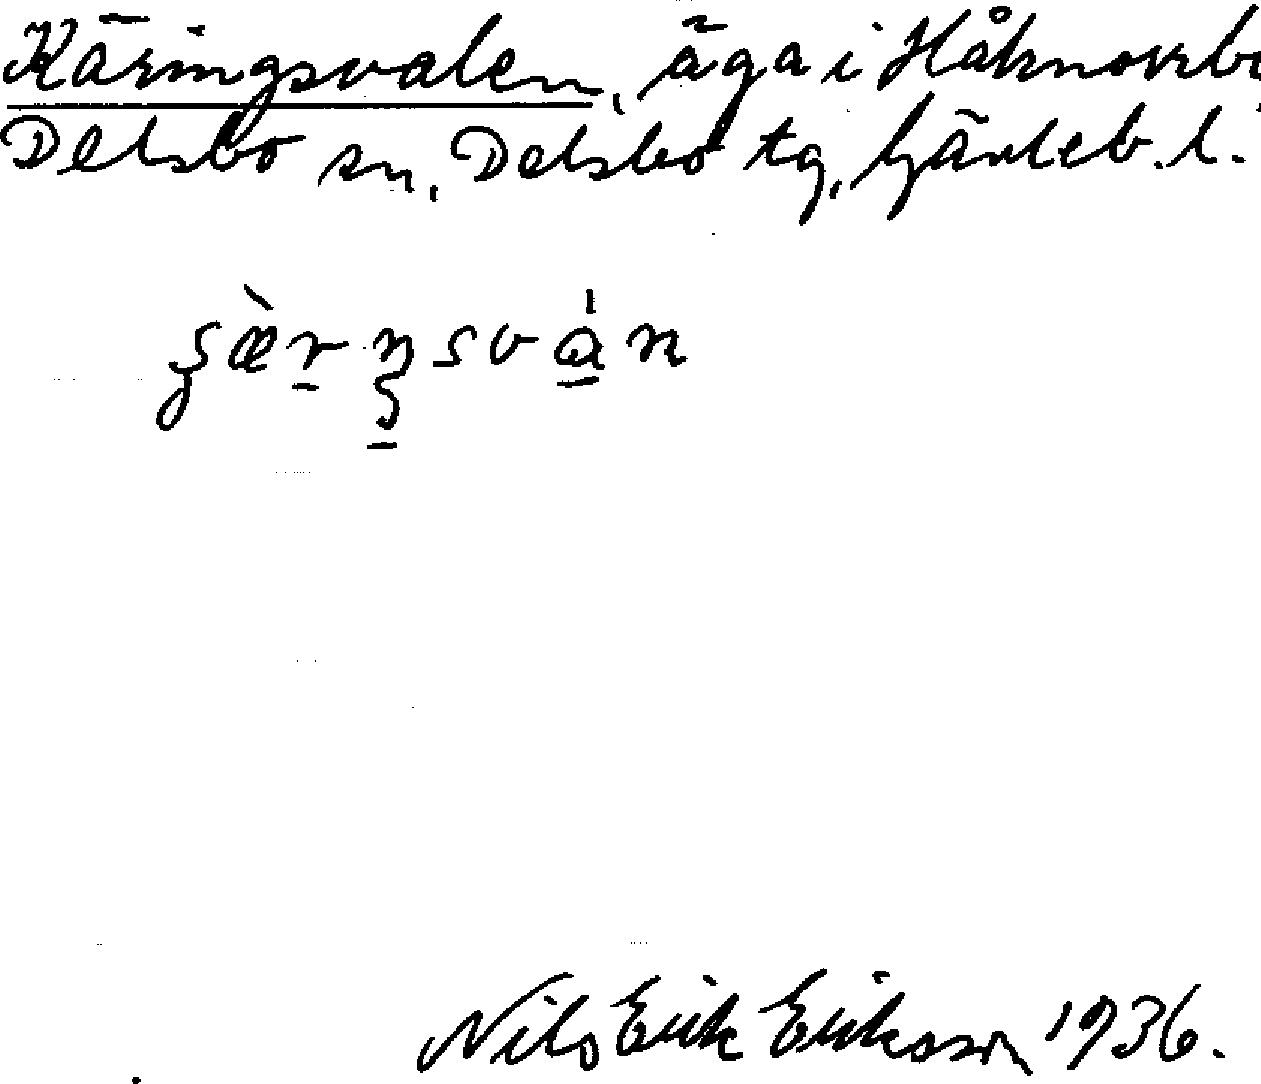 Käringsvalen, äga i Håknorrbo
Delsbo sn, Delsbo tg, Gävleb. l.
Nils Erik Eriksson 1936.